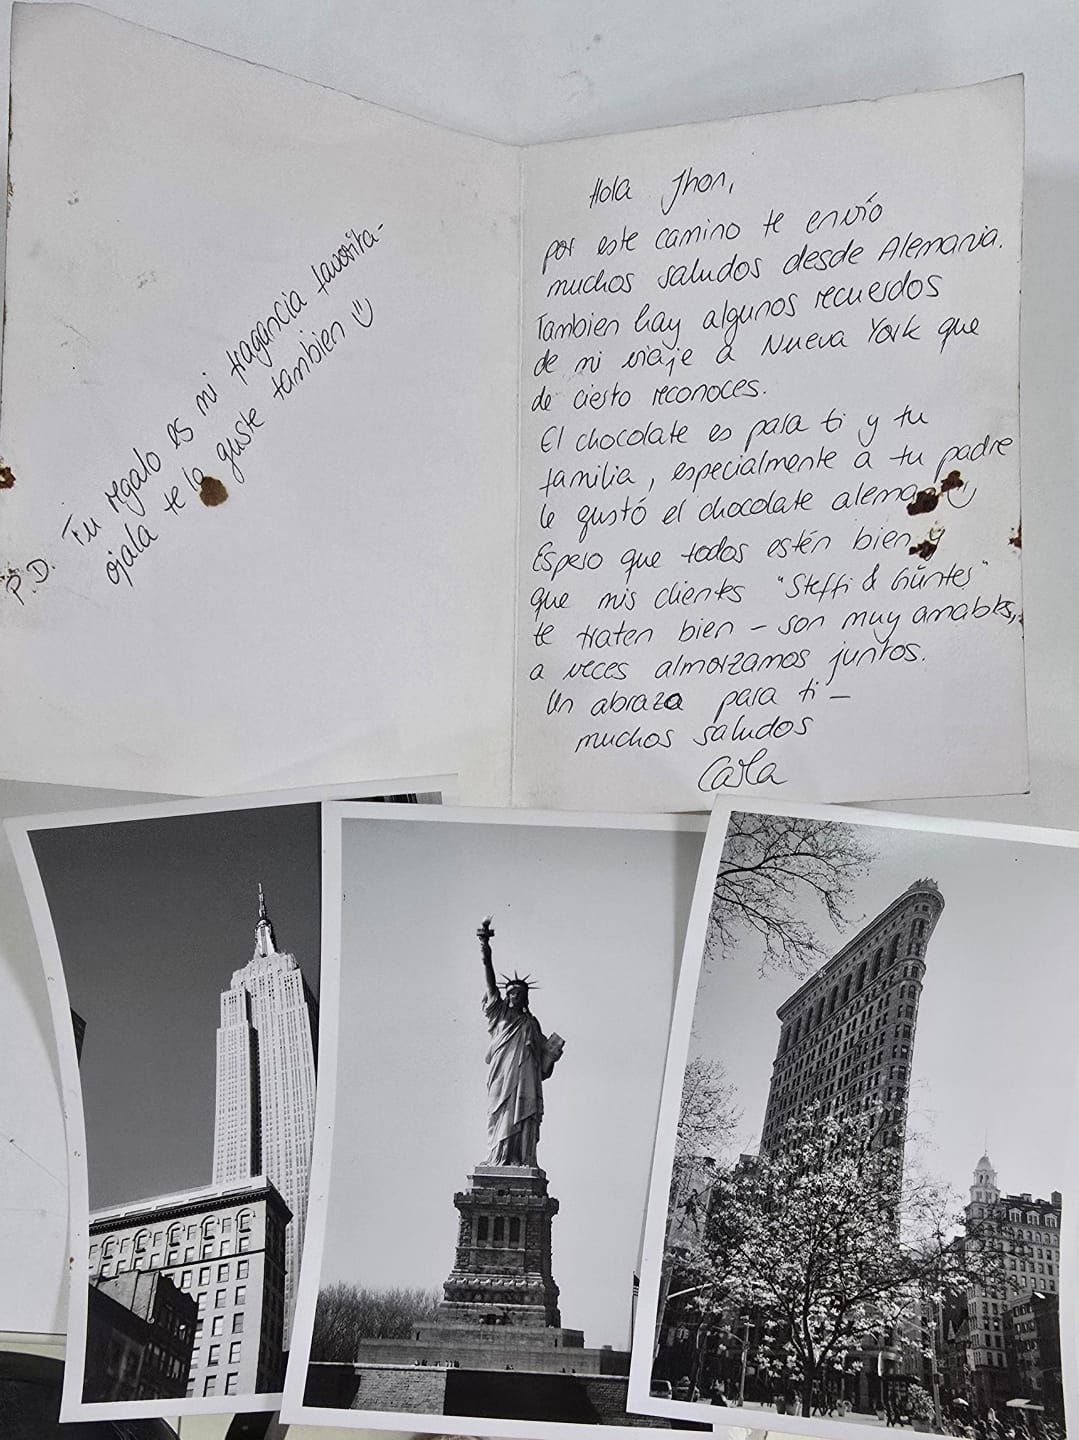 P.D. Tu regalo es mi fragancia favorita-
ojala te la guste tambien
Hola Jhon,
por este camino te envío
muchos saludos desde Alemania.
Tambien hay algunos recuerdos
de mi viaje a Nueva York que
de cierto reconoces.
El chocolate es para ti y tu
familia, especialmente a tu padre
le gustó el chocolate alemán
Espero que todos estén bien y
que mis clientes "Steffi & Günter"
te traten bien – son muy amables,
a veces almorzamos juntos.
Un abrazo para ti –
muchos saludos
Carla